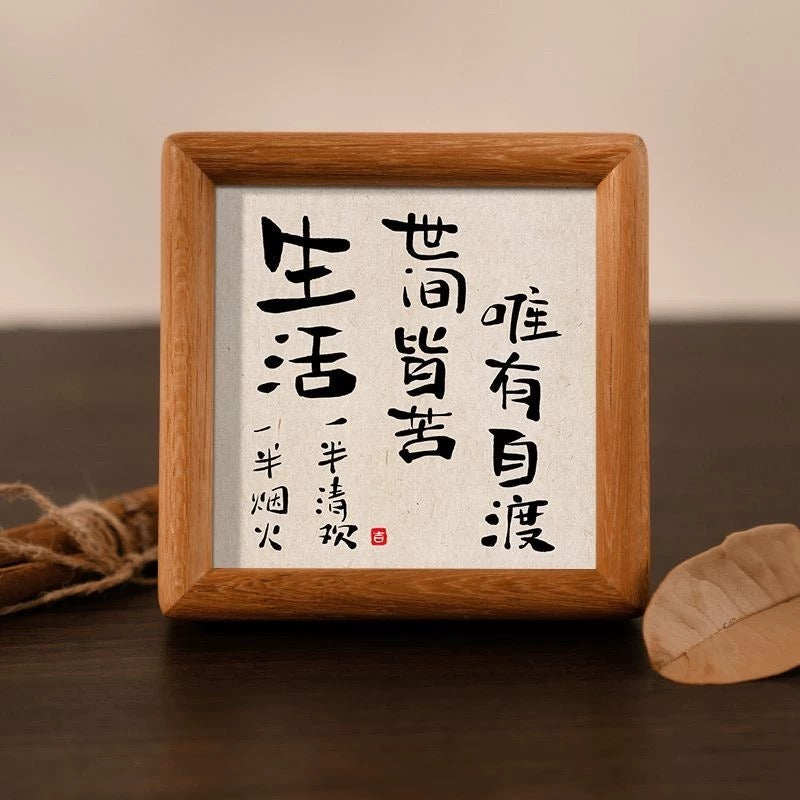 生活
一半烟火
一半清欢
世间皆苦
唯有自渡
吉